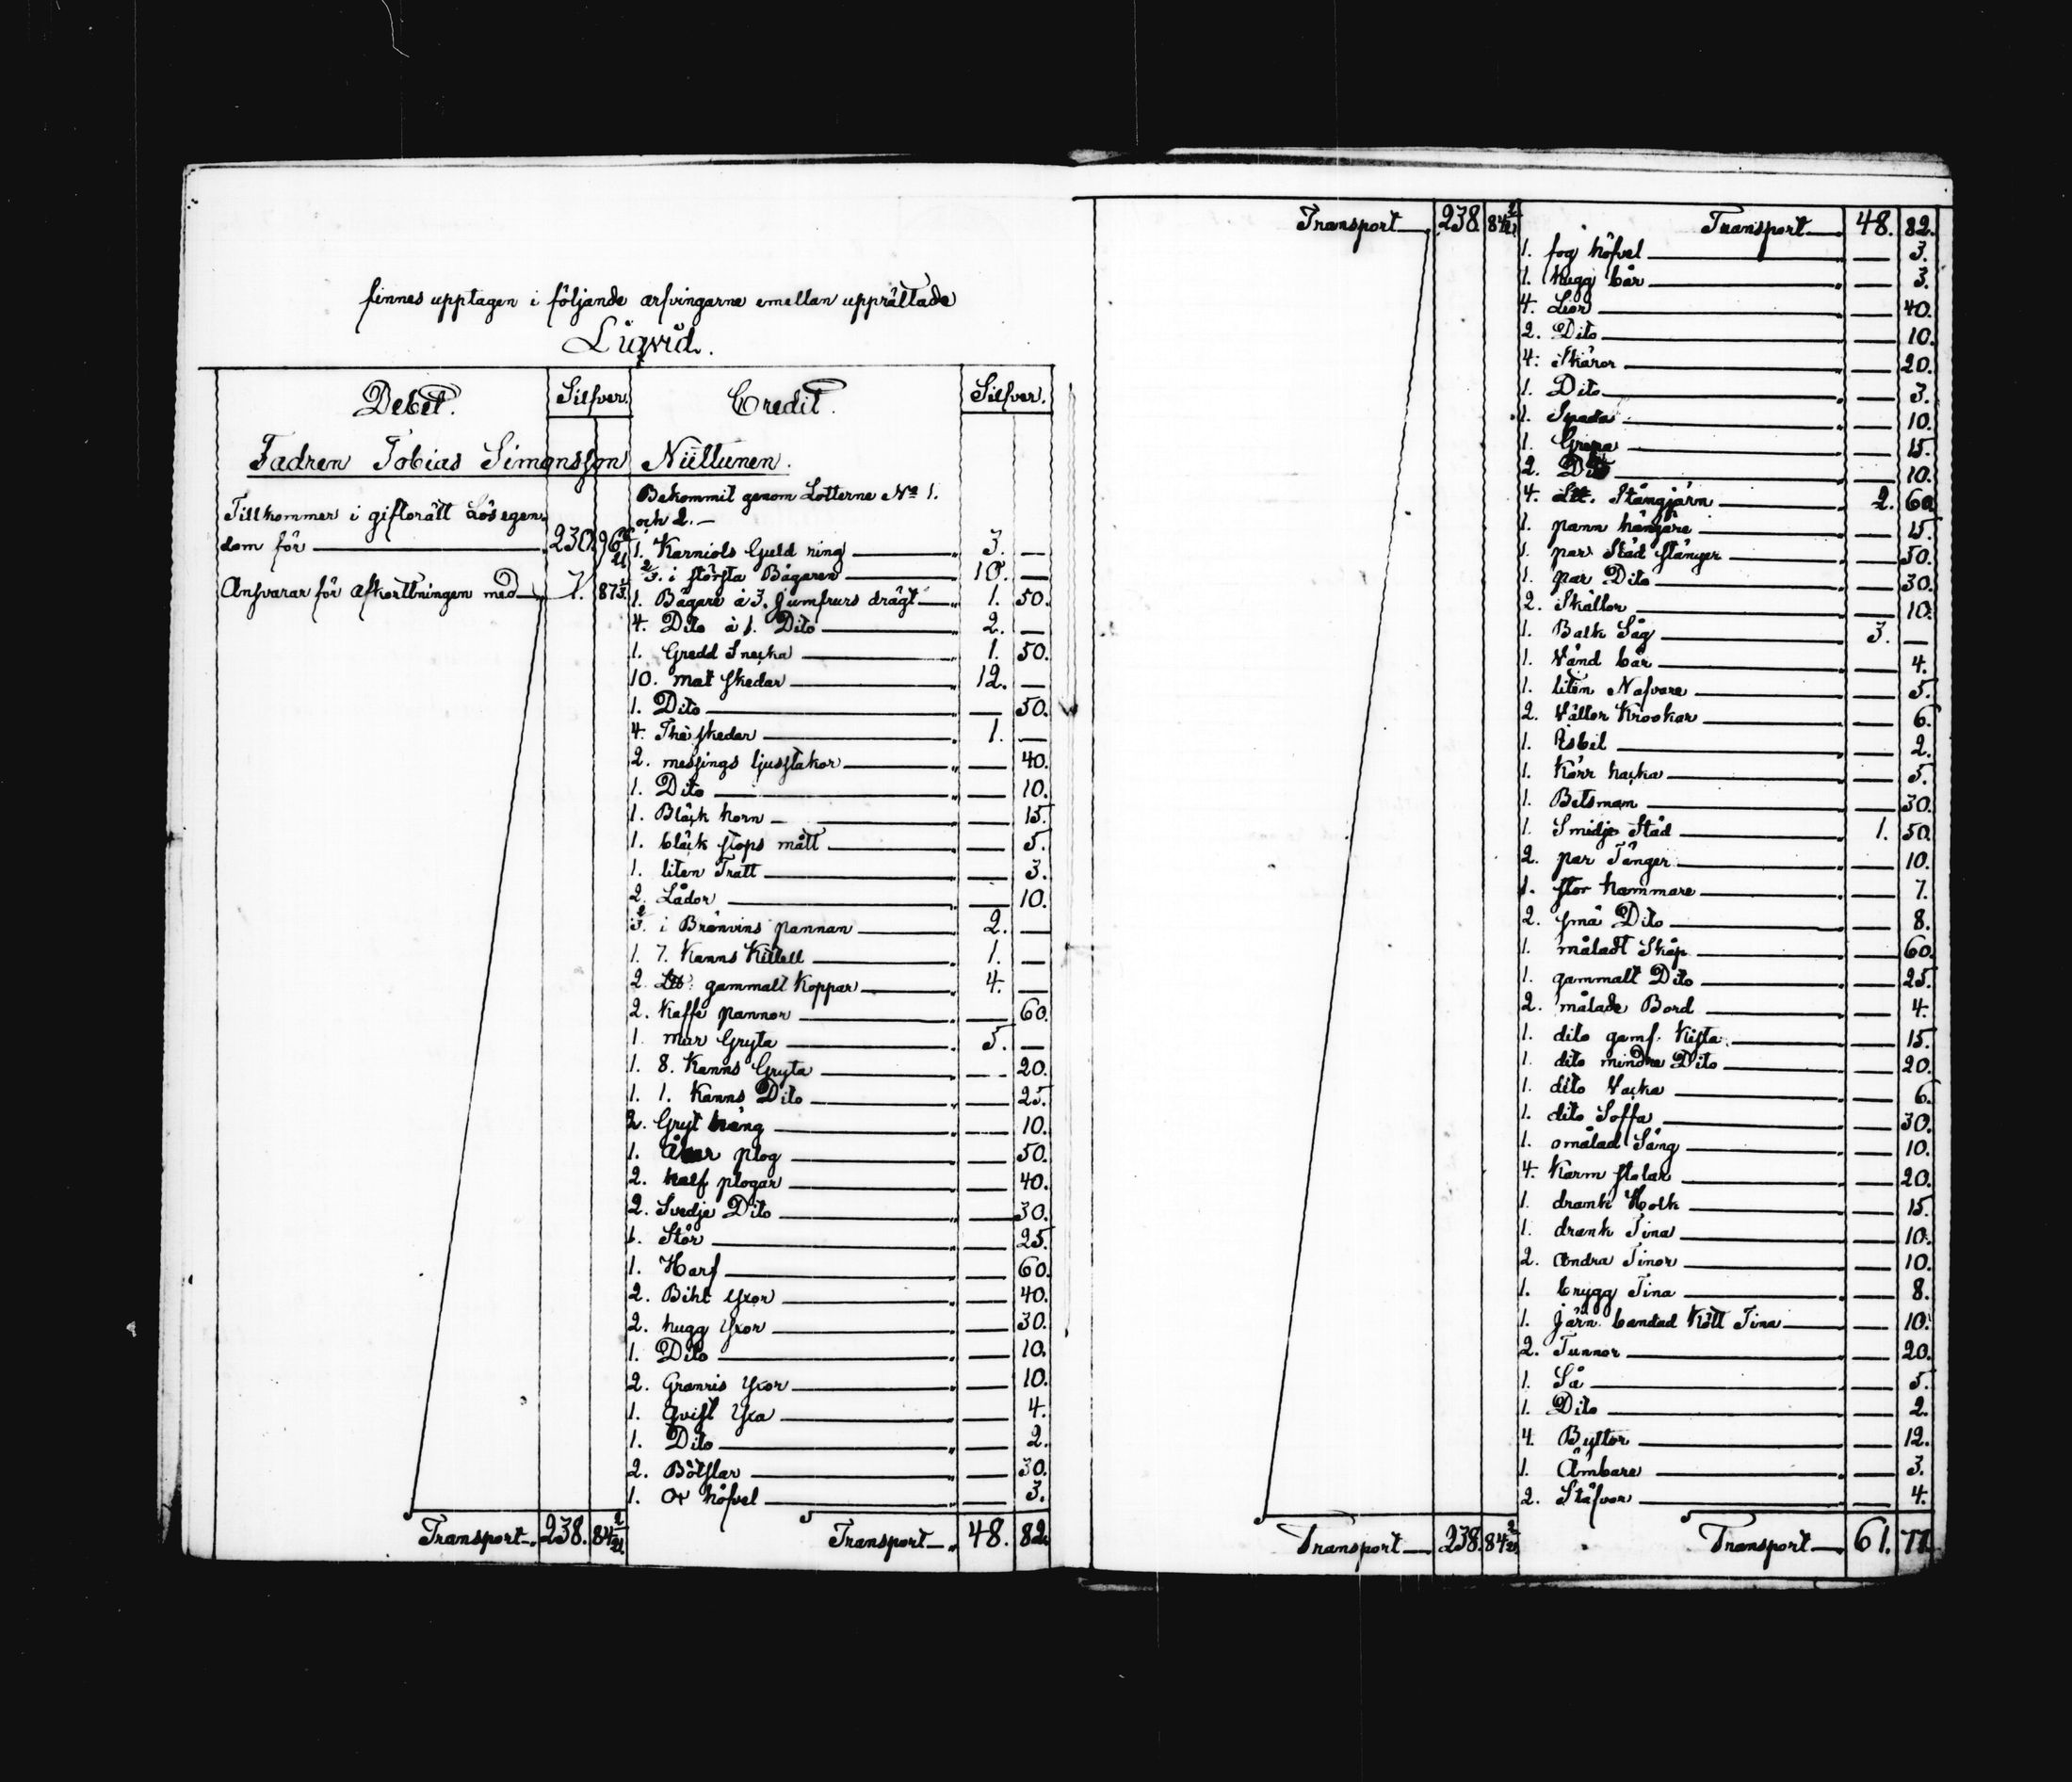 finnes upptagen i följande arfvingarne emellan upprättade
Liqvid.
Debet. Silfver. Credit. Silfver.
Fadren Tobias Simonsson Niilunen.
Tillkommer i giftorätt Lös egen-
dom för 230. 96
Ansvarar för afkorttningen med 7. 87
Bekommit genom Lotterne No 1.
och 2.
1. Karniols Guld ring 3. —
2/3. i största Bägaren 10. —
1. Bägare à 3. jumfrurs drägt 1. 50.
4. Dito à 1. Dito 2. —
1. Gredd Snecka 1. 50.
10. mat skedar 12. —
1. Dito — 50.
4. The skedar 1. —
2. messings ljusstakor — 40.
1. Dito — 10.
1. Bläck horn — 15.
1. bläck stops mått — 5.
1. liten Tratt — 3.
2. Lådor — 10.
2/3. i Bränvins pannan 2. —
1. 7. Kanns Kittell 1. —
2. Ltt: gammalt Koppar 4. —
2. Kaffe pannor — 60.
1. mur Gryta 5. —
1. 8. Kanns Gryta — 20.
1. 1. Kanns Dito — 25.
2. Gryt häng — 10.
1. Åker plog — 50.
2. half plogar — 40.
2. Svedje Dito — 30.
1. Stör — 25.
1. Harf — 60.
2. Bihl Yxor — 40.
2. hugg Yxor — 30.
1. Dito — 10.
2. Granris Yxor — 10.
1. Qvist Yxa — 4.
1. Dito — 2.
2. Bötslar — 30.
1. Ox höfvel — 3.
Transport 238. 84 2/21 Transport 48. 82.
Transport 238. 84 2/21 Transport 48. 82.
1. fog höfvel — 3.
1. hugg bår — 3.
4. Lior — 40.
2. Dito — 10.
4. Skäror — 20.
1. Dito — 3.
1. Spada — 10.
1. Grepa — 15.
2. Dito — 10.
4. Ltt. Stångjärn 2. 60.
1. pann hängare — 15.
1. par Städ stänger — 50.
1. par Dito — 30.
2. Skällor — 10.
1. Balk Såg 3. —
1. Vänd bår — 4.
1. liten Nafvare — 5.
2. Vältor Krookar — 6.
1. Isbil — 2.
1. Kärr hacka — 5.
1. Betsman — 30.
1. Smidje Städ 1. 50.
2. par Tänger — 10.
1. stor hammare — 7.
2. små Dito — 8.
1. måladt Skåp — 60.
1. gammalt Dito — 25.
2. målade Bord — 4.
1. dito gaml. Kista — 15.
1. dito mindre Dito — 20.
1. dito Vacka — 6.
1. dito Soffa — 30.
1. omålad Säng — 10.
4. Karm stolar — 20.
1. drank Holk — 15.
1. drank Tina — 10.
2. andra Tinor — 10.
1. brygg Tina — 8.
1. järn bandad Kött Tina — 10.
2. Tunnor — 20.
1. Så — 5.
1. Dito — 2.
4. Byttor — 12.
1. Ämbare — 3.
2. Stäfvor — 4.
Transport 238. 84 2/21 Transport 61. 77.